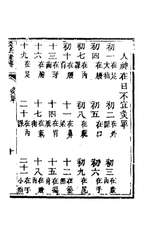 人神在日不宜灸單
初一在大指 初二在外踝 初三在股內
初四在腰 初五在口 初六在手
初七在內踝 初八在腕 初九在尻
初十在腰背 十一在鼻柱 十二在髮際
十三在牙齒 十四在胃脘 十五在遍身
十六在胸 十七在氣衝 十八在股內
十九在足 二十在內踝 二十一在小指